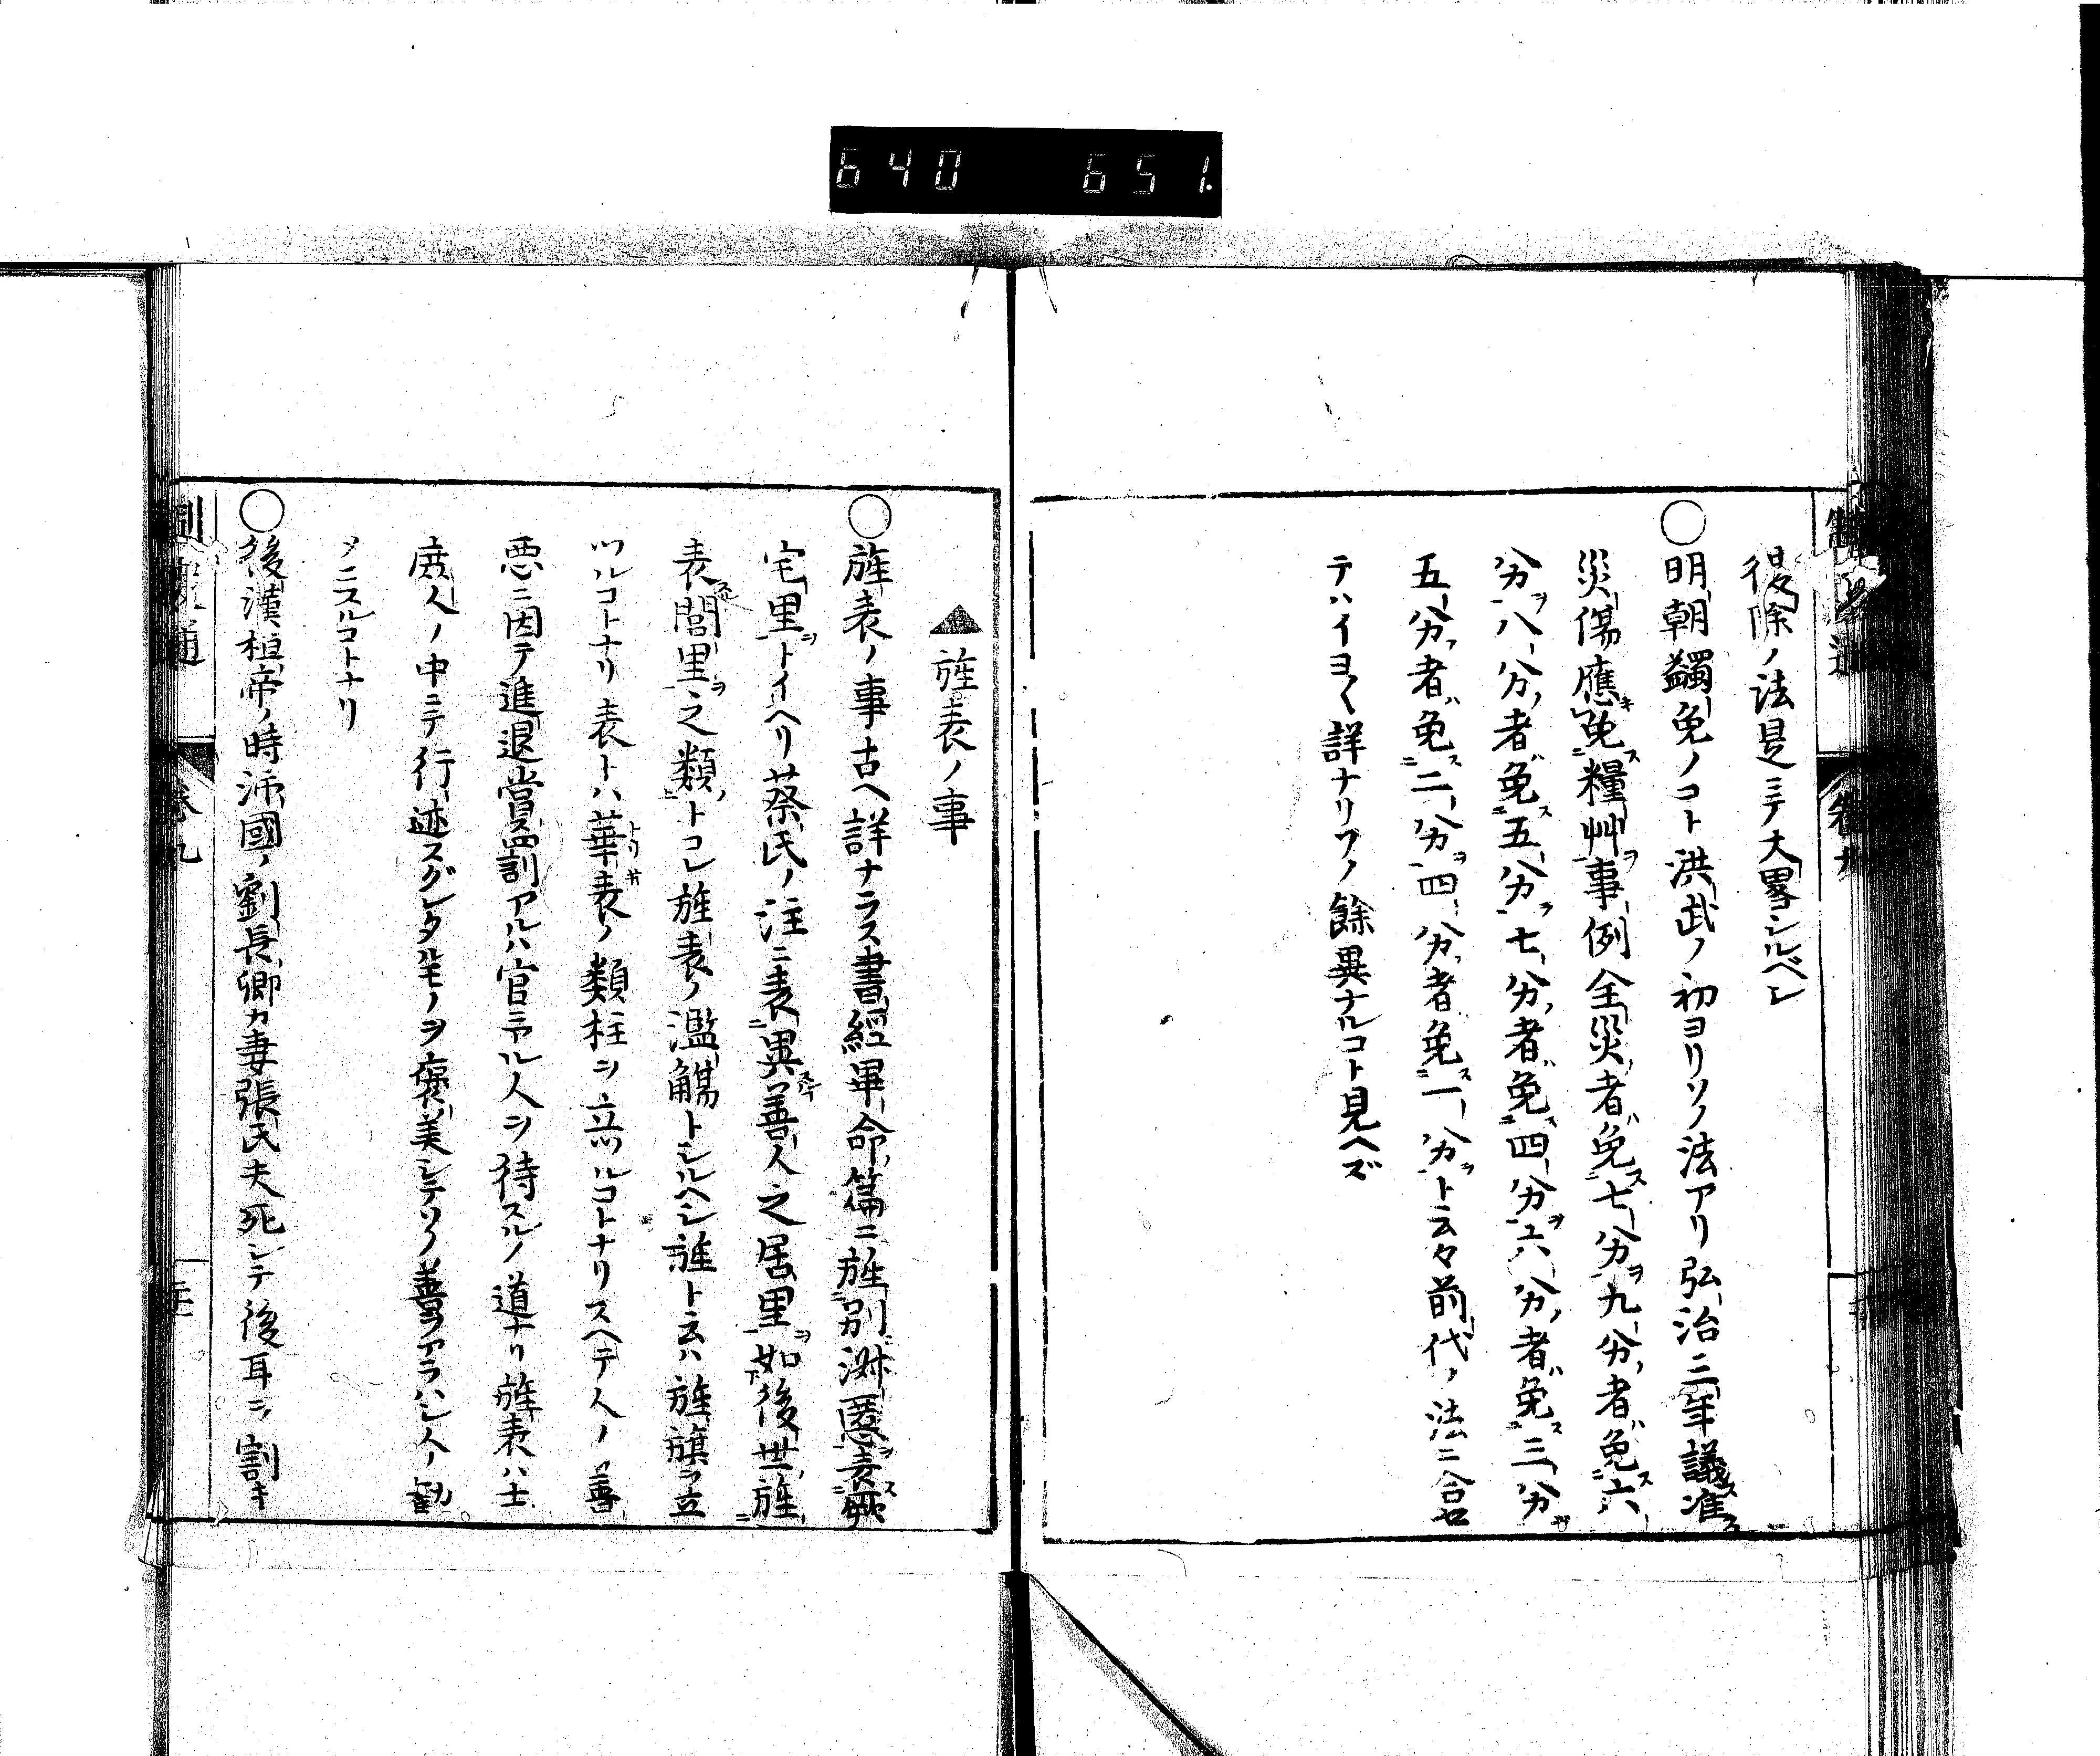 640 651.
復除ノ法是ニテ大畧シルベシ
○明朝蠲免ノコト洪武ノ初ヨリソノ法アリ弘治三年議准
災傷應免糧艸事例全災者免七分九分者免六
分八分者免五分七分者免四分六分者免三分
五分者免二分四分者免一分ト云々前代ノ法ニ合セ
テハイヨ〱詳ナリソノ餘異ナルコト見ヘズ
▲旌表ノ事
○旌表ノ事古ヘ詳ナラス書經畢命篇ニ旌別淑慝表厥
宅里トイヘリ蔡氏ノ注ニ表異善人之居里如後世旌
表閭里之類トコレ旌表ノ濫觴トシルヘシ旌ト云ハ旌旗ヲ立
ツルコトナリ表トハ華表ノ類柱ヲ立ツルコトナリスヘテ人ノ善
悪ニ因テ進退賞罰アルハ官ニアル人ヲ待スルノ道ナリ旌表ハ士
庶人ノ中ニテ行迹スグレタルモノヲ褒美シテソノ善ヲアラハシ人ノ勧
メニスルコトナリ
○後漢桓帝ノ時沛國ノ劉長卿カ妻張氏夫死シテ後耳ヲ割キ
制度通 卷九